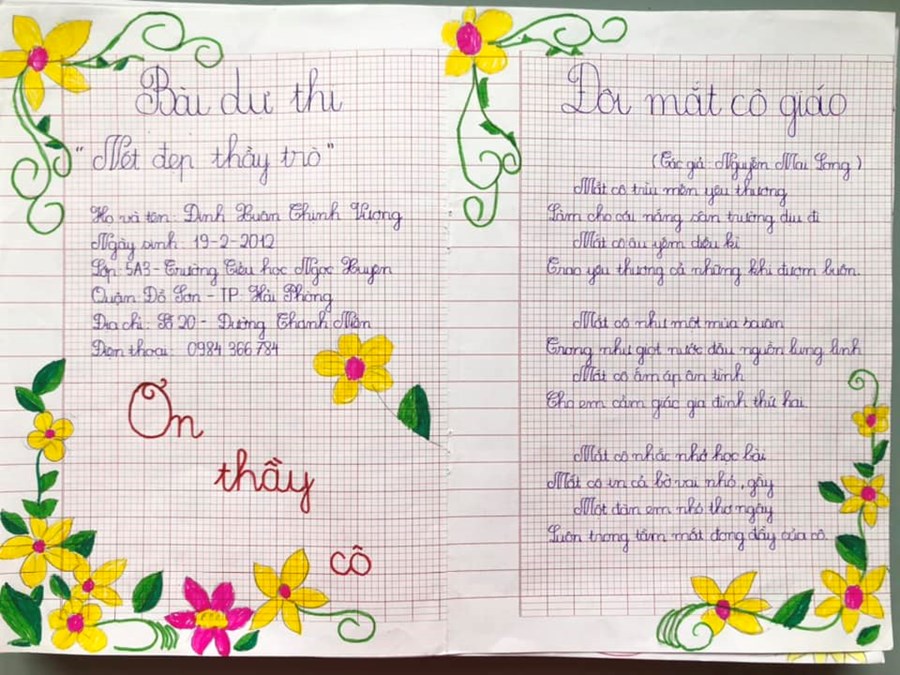 Bài dự thi
"Nét đẹp thầy trò"
Họ và tên: Đinh Xuân Thịnh Vượng
Ngày sinh: 19-2-2012
Lớp: 5A3 - Trường Tiểu học Ngọc Xuyên
Quận Đồ Sơn - TP: Hải Phòng
Địa chỉ: Số 20 - Đường Thanh Niên
Điện thoại: 0984 366 784
Ơn
thầy
cô
Đôi mắt cô giáo
(Tác giả: Nguyễn Mai Long)
Mắt cô trìu mến yêu thương
Làm cho cái nắng sân trường dịu đi
Mắt cô âu yếm diệu kì
Trao yêu thương cả những khi đượm buồn.
Mắt cô như một mùa xuân
Trong như giọt nước đầu nguồn lung linh
Mắt cô ấm áp ân tình
Cho em cảm giác gia đình thứ hai.
Mắt cô nhắc nhở học bài
Mắt cô in cả bờ vai nhỏ, gầy
Một đàn em nhỏ thơ ngây
Luôn trong tầm mắt dong đầy của cô.